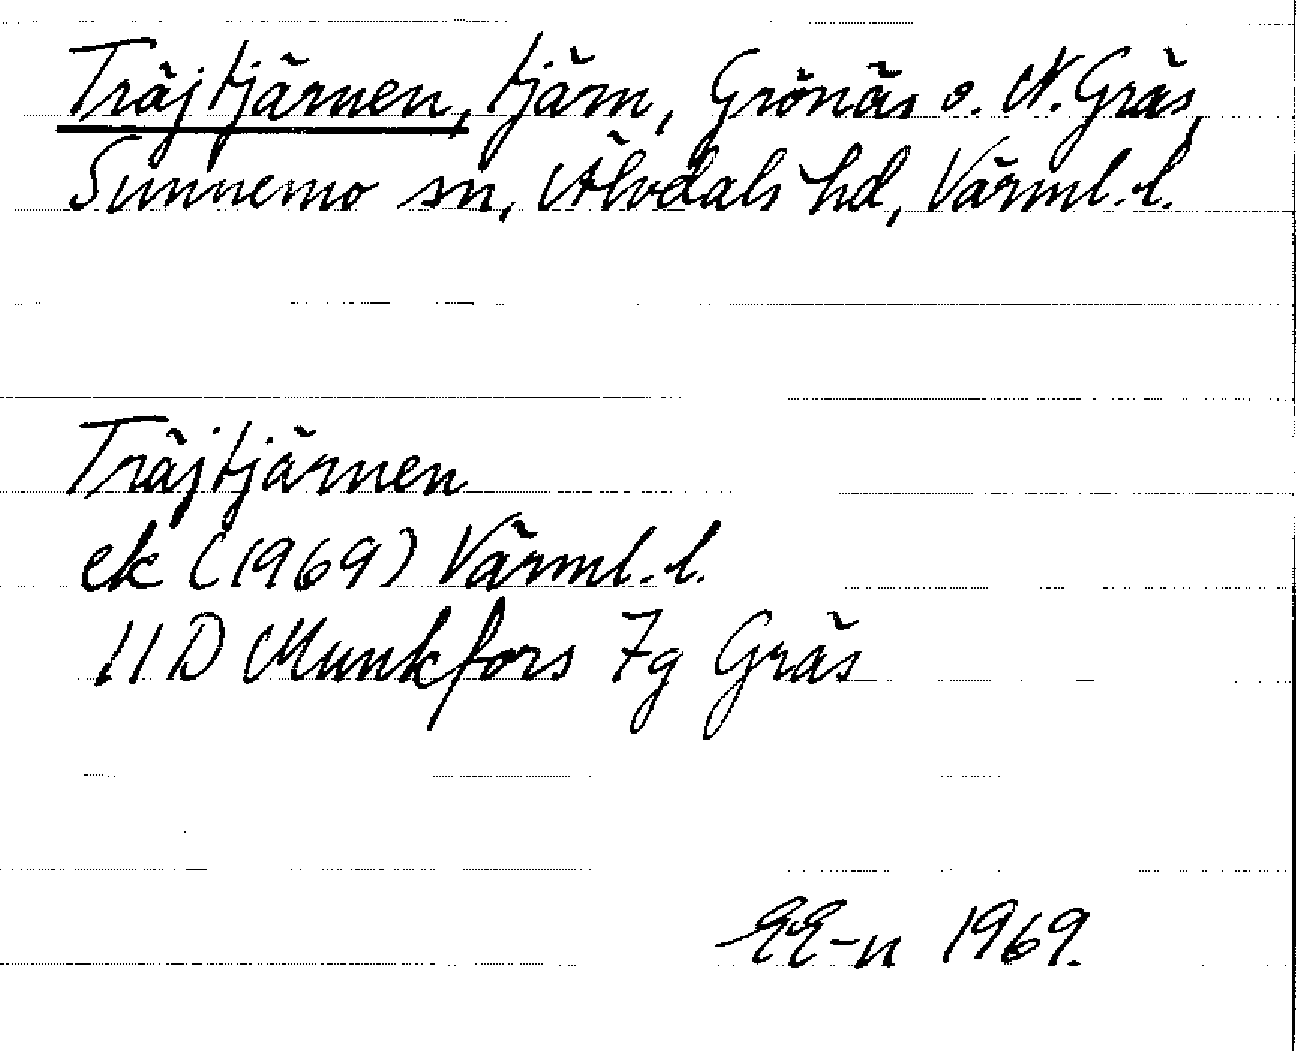 Träjtjärnen, tjärn, Grönäs o. N. Gräs,
Sunnemo sn, Älvdals hd, Värml. l.
Träjtjärnen
ek (1969) Värml. l.
11D Munkfors 7g Gräs
EE-n 1969.